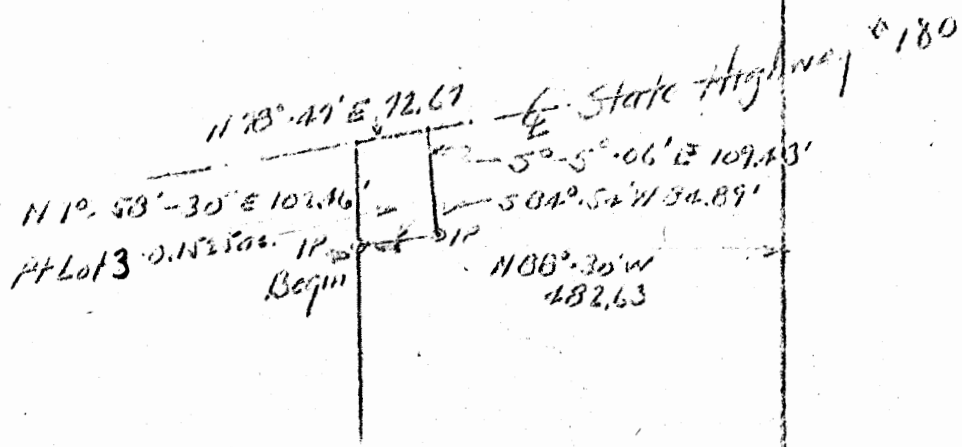 N 78°-47' E 72.67
℄ State Highway #180
S°-5°-06' E 109.43'
N 1°-58'-30" E 102.46'
S 84°-54' W 84.89'
Pt Lot 3 0.1525 ac.
IP
IP
Begin
N 88°-30' W
482.63